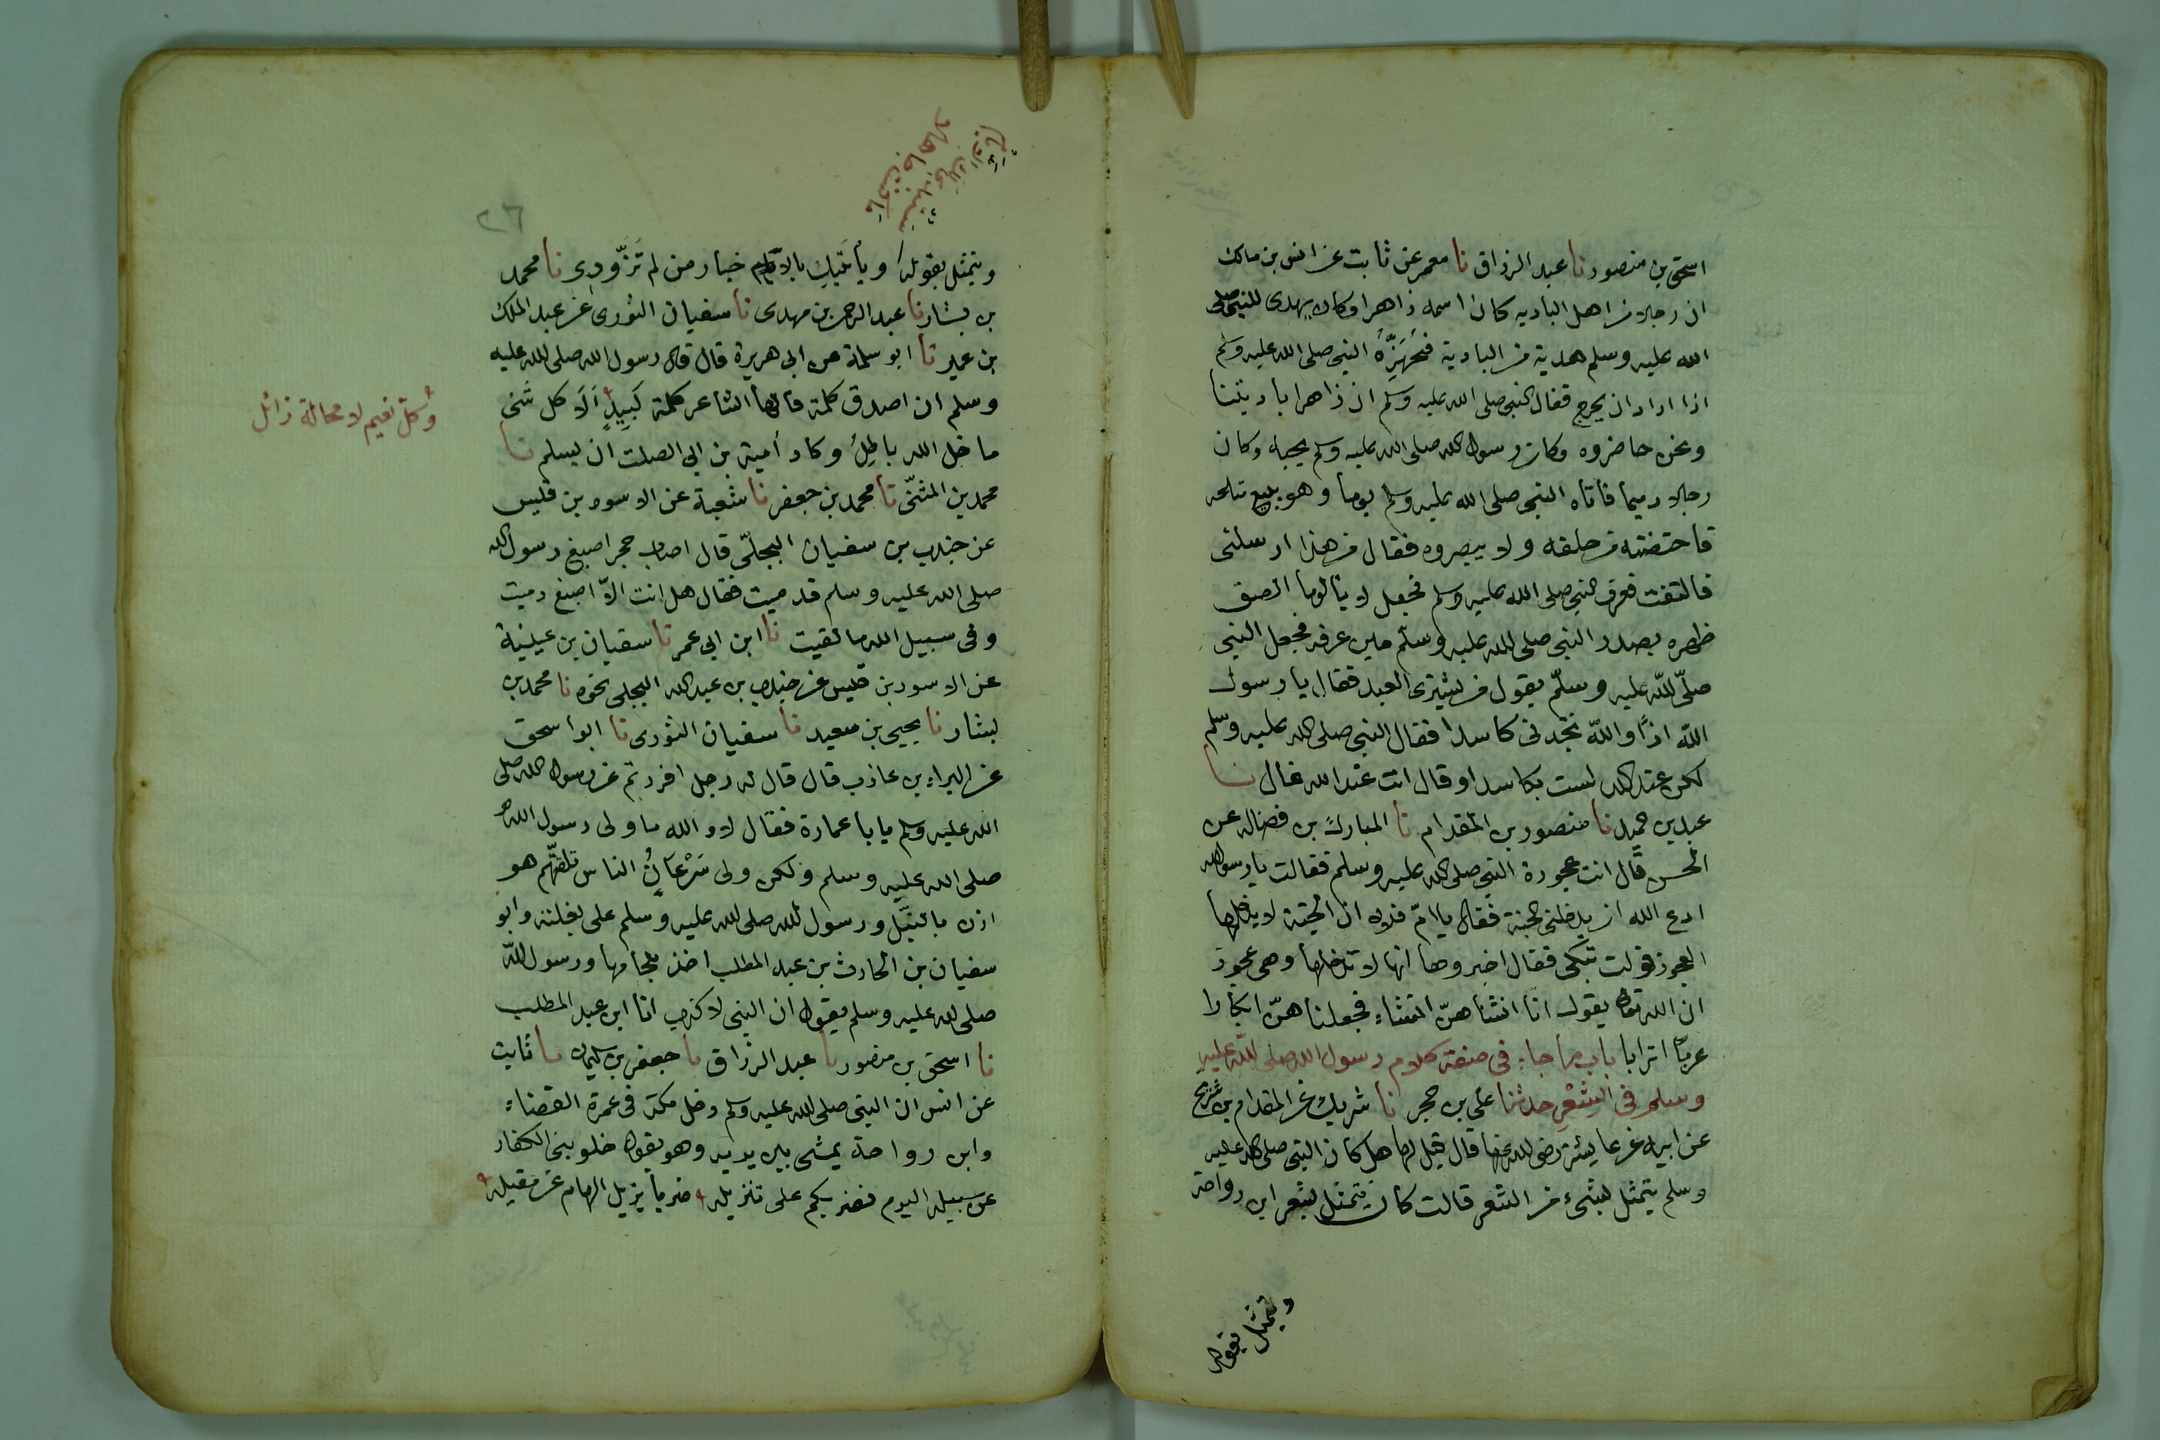 اسحق بن منصور نا عبد الرزاق نا معمر عن ثابت عن انس بن مالك
ان رجلا من اهل الباديه كان اسمه زاهرا وكان يهدى للنبي صلى
الله عليه وسلم هدية من البادية فيجهزه النبي صلى الله عليه وسلم
اذا اراد ان يخرج فقال النبي صلى الله عليه وسلم ان زاهرا باديتنا
ونحن حاضروه وكان رسول الله صلى الله عليه وسلم يحبه وكان
رجلا دميما فاتاه النبي صلى الله عليه وسلم يوما وهو يبيع متاعه
فاحتضنه من خلفه ولا يبصروه فقال من هذا ارسلني
فالتفت فعرف النبي صلى الله عليه وسلم فجعل لا يألوا ما الصق
ظهره بصدر النبي صلى الله عليه وسلم حين عرفه فجعل النبي
صلّى الله عليه وسلّم يقول من يشترى العبد فقال يا رسول
الله اذًا والله تجدنى كاسدا فقال النبي صلى الله عليه وسلم
لكن عند الله لست بكاسد او قال انت عند الله غال نا
عبد بن حميد نا منصور بن المقدام نا المبارك بن فضاله عن
الحسن قال اتت عجوزة النبي صلى الله عليه وسلم فقالت يا رسول الله
ادع الله ان يدخلني الجنة فقال يا امّ فلان ان الجنة لا يدخلها
العجوز فولت تبكى فقال اخبروها انها لا تدخلها وهى عجوز
ان الله تعالى يقول انا انشأناهنّ انشاء فجعلناهنّ ابكارا
عربًا اترابا باب ما جاء فى صفة كلام رسول الله صلى الله عليه
وسلم فى الشِّعْرِ حدثنا على بن حجر نا شريك عن المقدام بن شريح
عن ابيه عن عايشة رضى الله عنها قال قيل لها هل كان النبي صلى الله عليه
وسلم يتمثل بشىء من الشعر قالت كان يتمثل بشعر ابن رواحة
ويتمثل بقوله
ستبدى لك الايام
ما كنت جاهلا
٢٦
ويتمثل بقوله ويأتيك بالاخبار من لم تَزَّودِى نا محمد
بن بشار نا عبد الرحمن بن مهدى نا سفيان الثورى عن عبد الملك
بن عمير نا ابو سلمة عن ابى هريرة قال قال رسول الله صلى الله عليه
وسلم ان اصدق كلمة قالها الشاعر كلمة لَبِيدٍ اَلَا كل شىء
ما خلا الله باطلُ وكاد أمية بن ابى الصلت ان يسلم نا
وكلّ نعيم لا محالة زائل
محمد بن المثنّى نا محمد بن جعفر نا شعبة عن الاسود بن قيس
عن جندب بن سفيان البجلىّ قال اصاب حجر اصبع رسول الله
صلى الله عليه وسلم فدميت فقال هل انت الاّ اصبع دميت
وفى سبيل الله ما لقيت نا ابن ابى عمر نا سفيان بن عيينة
عن الاسود بن قيس عن جندب بن عبد الله البجلى نحوه نا محمد بن
بشار نا يحيى بن سعيد نا سفيان الثورى نا ابو اسحق
عن البراء بن عازب قال قال له رجل افررتم عن رسول الله صلى
الله عليه وسلم يا با عمارة فقال لا والله ما ولى رسول الله
صلى الله عليه وسلم ولكن ولى سَرْعَانُ الناس تلقتهم هو
ازن بالنَّبْل ورسول الله صلى الله عليه وسلم على بغلته وابو
سفيان بن الحارث بن عبد المطلب اخذ بلجامها ورسول الله
صلى الله عليه وسلم يقول انا النبي لا كذب انا ابن عبد المطلب
نا اسحق بن منصور نا عبد الرزاق نا جعفر بن سليمان نا ثابت
عن انس ان النبي صلى الله عليه وسلم دخل مكة فى عمرة القضاء
وابن رواحة يمشى بين يديه وهو يقول خلو بنى الكفار
عن سبيله اليوم نضربكم على تنزيله ضربا يزيل الهام عن مقيله